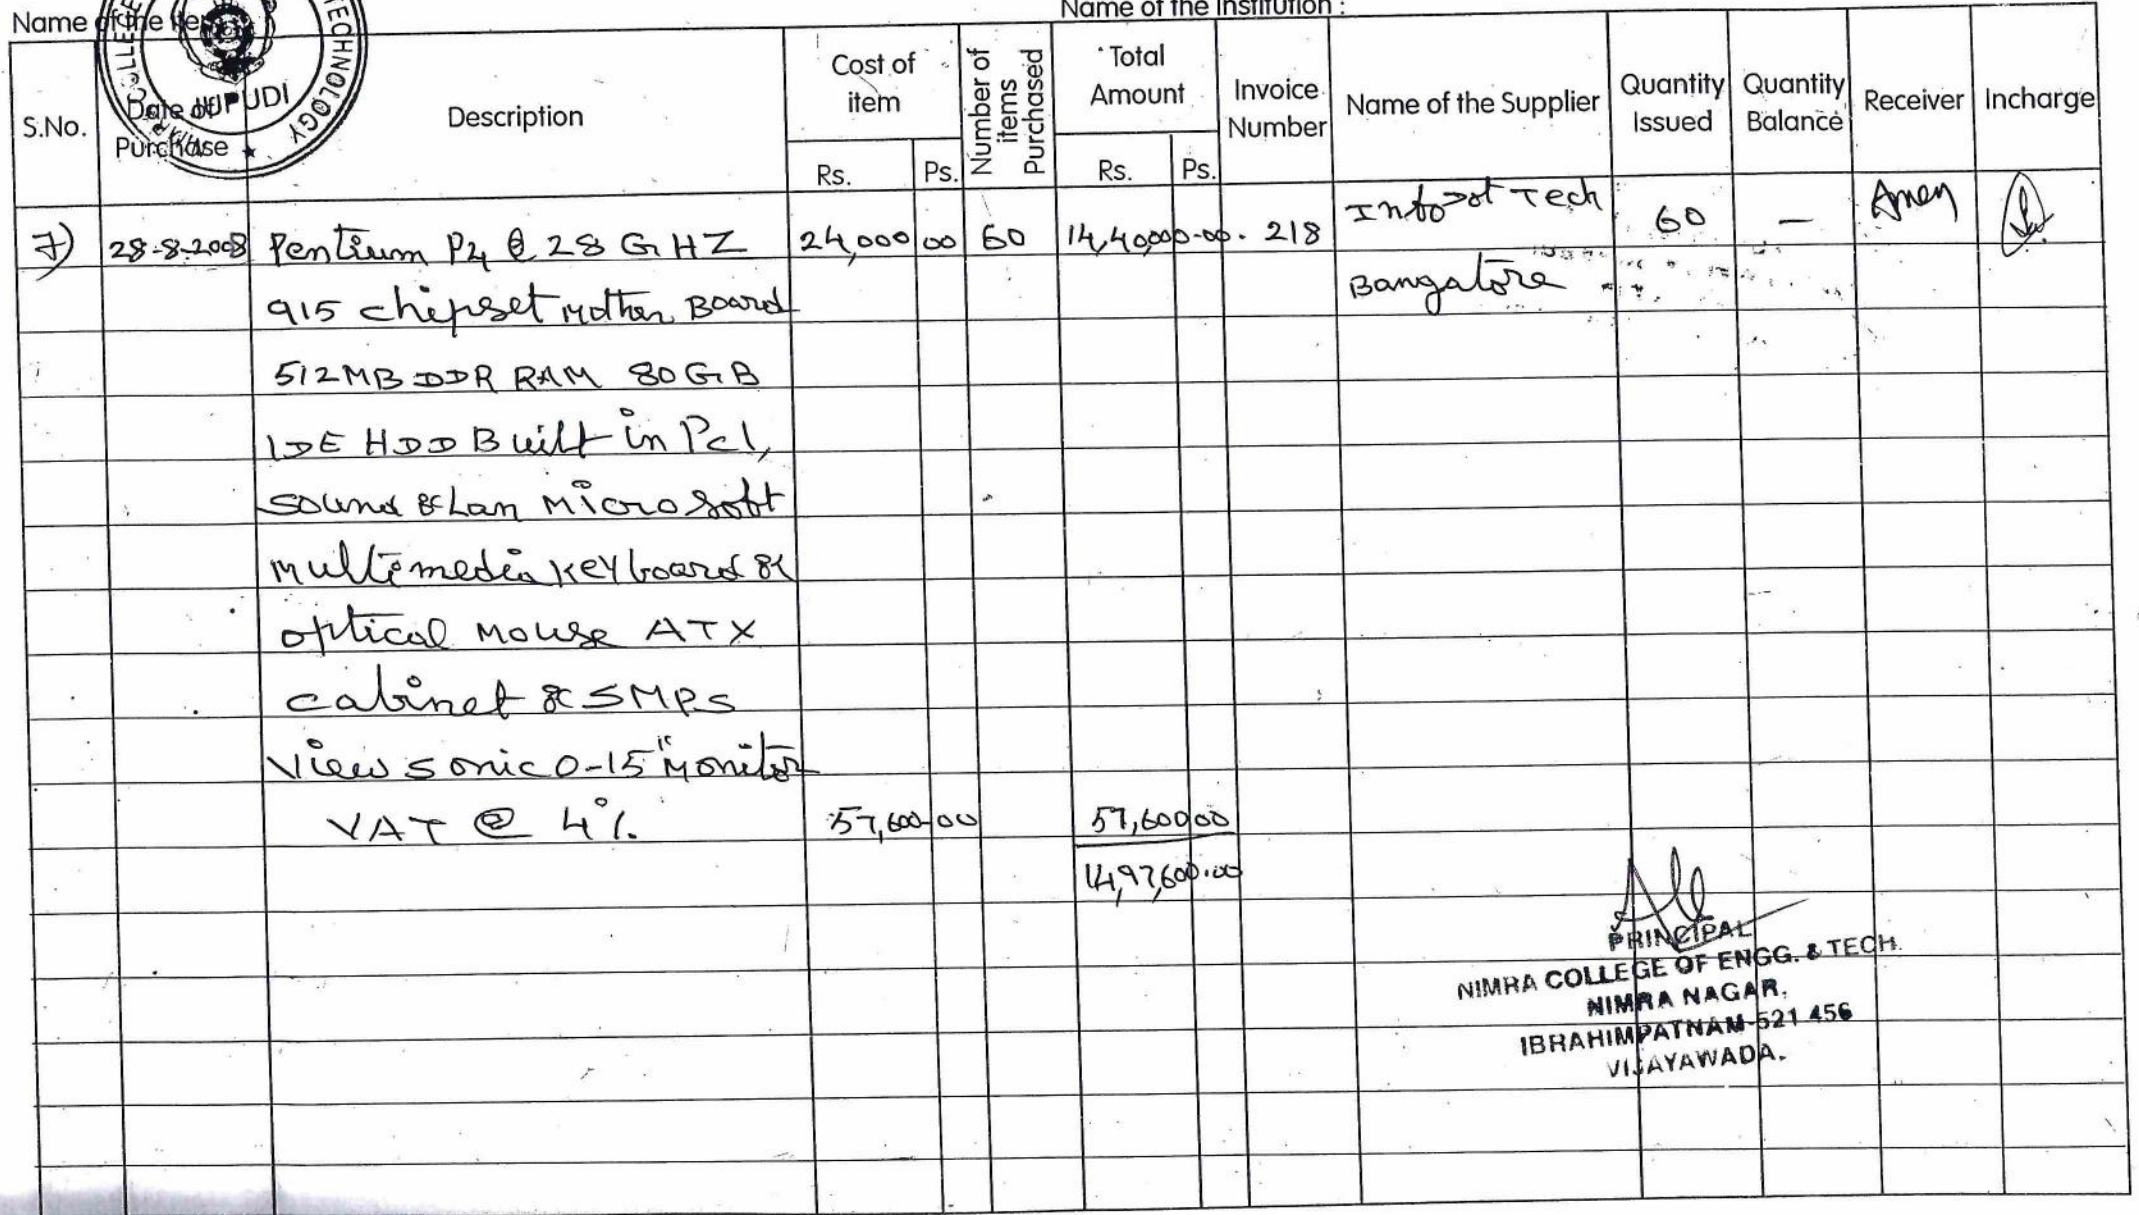 Name of the Item
Name of the Institution :
COLLEGE
TECHNOLOGY
JUPUDI
S.No.
Date of
Purchase
Description
Cost of
item
Rs. Ps.
Number of
items
Purchased
Total
Amount
Rs. Ps.
Invoice
Number
Name of the Supplier
Quantity
Issued
Quantity
Balance
Receiver
Incharge
7) 28-8-2008 Pentium P4 @ 28 GHZ 24,000 00 60 14,40,000-00. 218 Infodot Tech 60 –
915 chipset Mother Board Bangalore
512MB DDR RAM 80GB
IDE HDD Built in PCI,
Sound & Lan Microsoft
multimedia keyboard &
optical mouse ATX
cabinet & SMPS
View sonic 0-15" Monitor
VAT @ 4% 57,600-00 57,600 00
14,97,600.00
PRINCIPAL
NIMRA COLLEGE OF ENGG. & TECH.
NIMRA NAGAR,
IBRAHIMPATNAM-521 456
VIJAYAWADA.